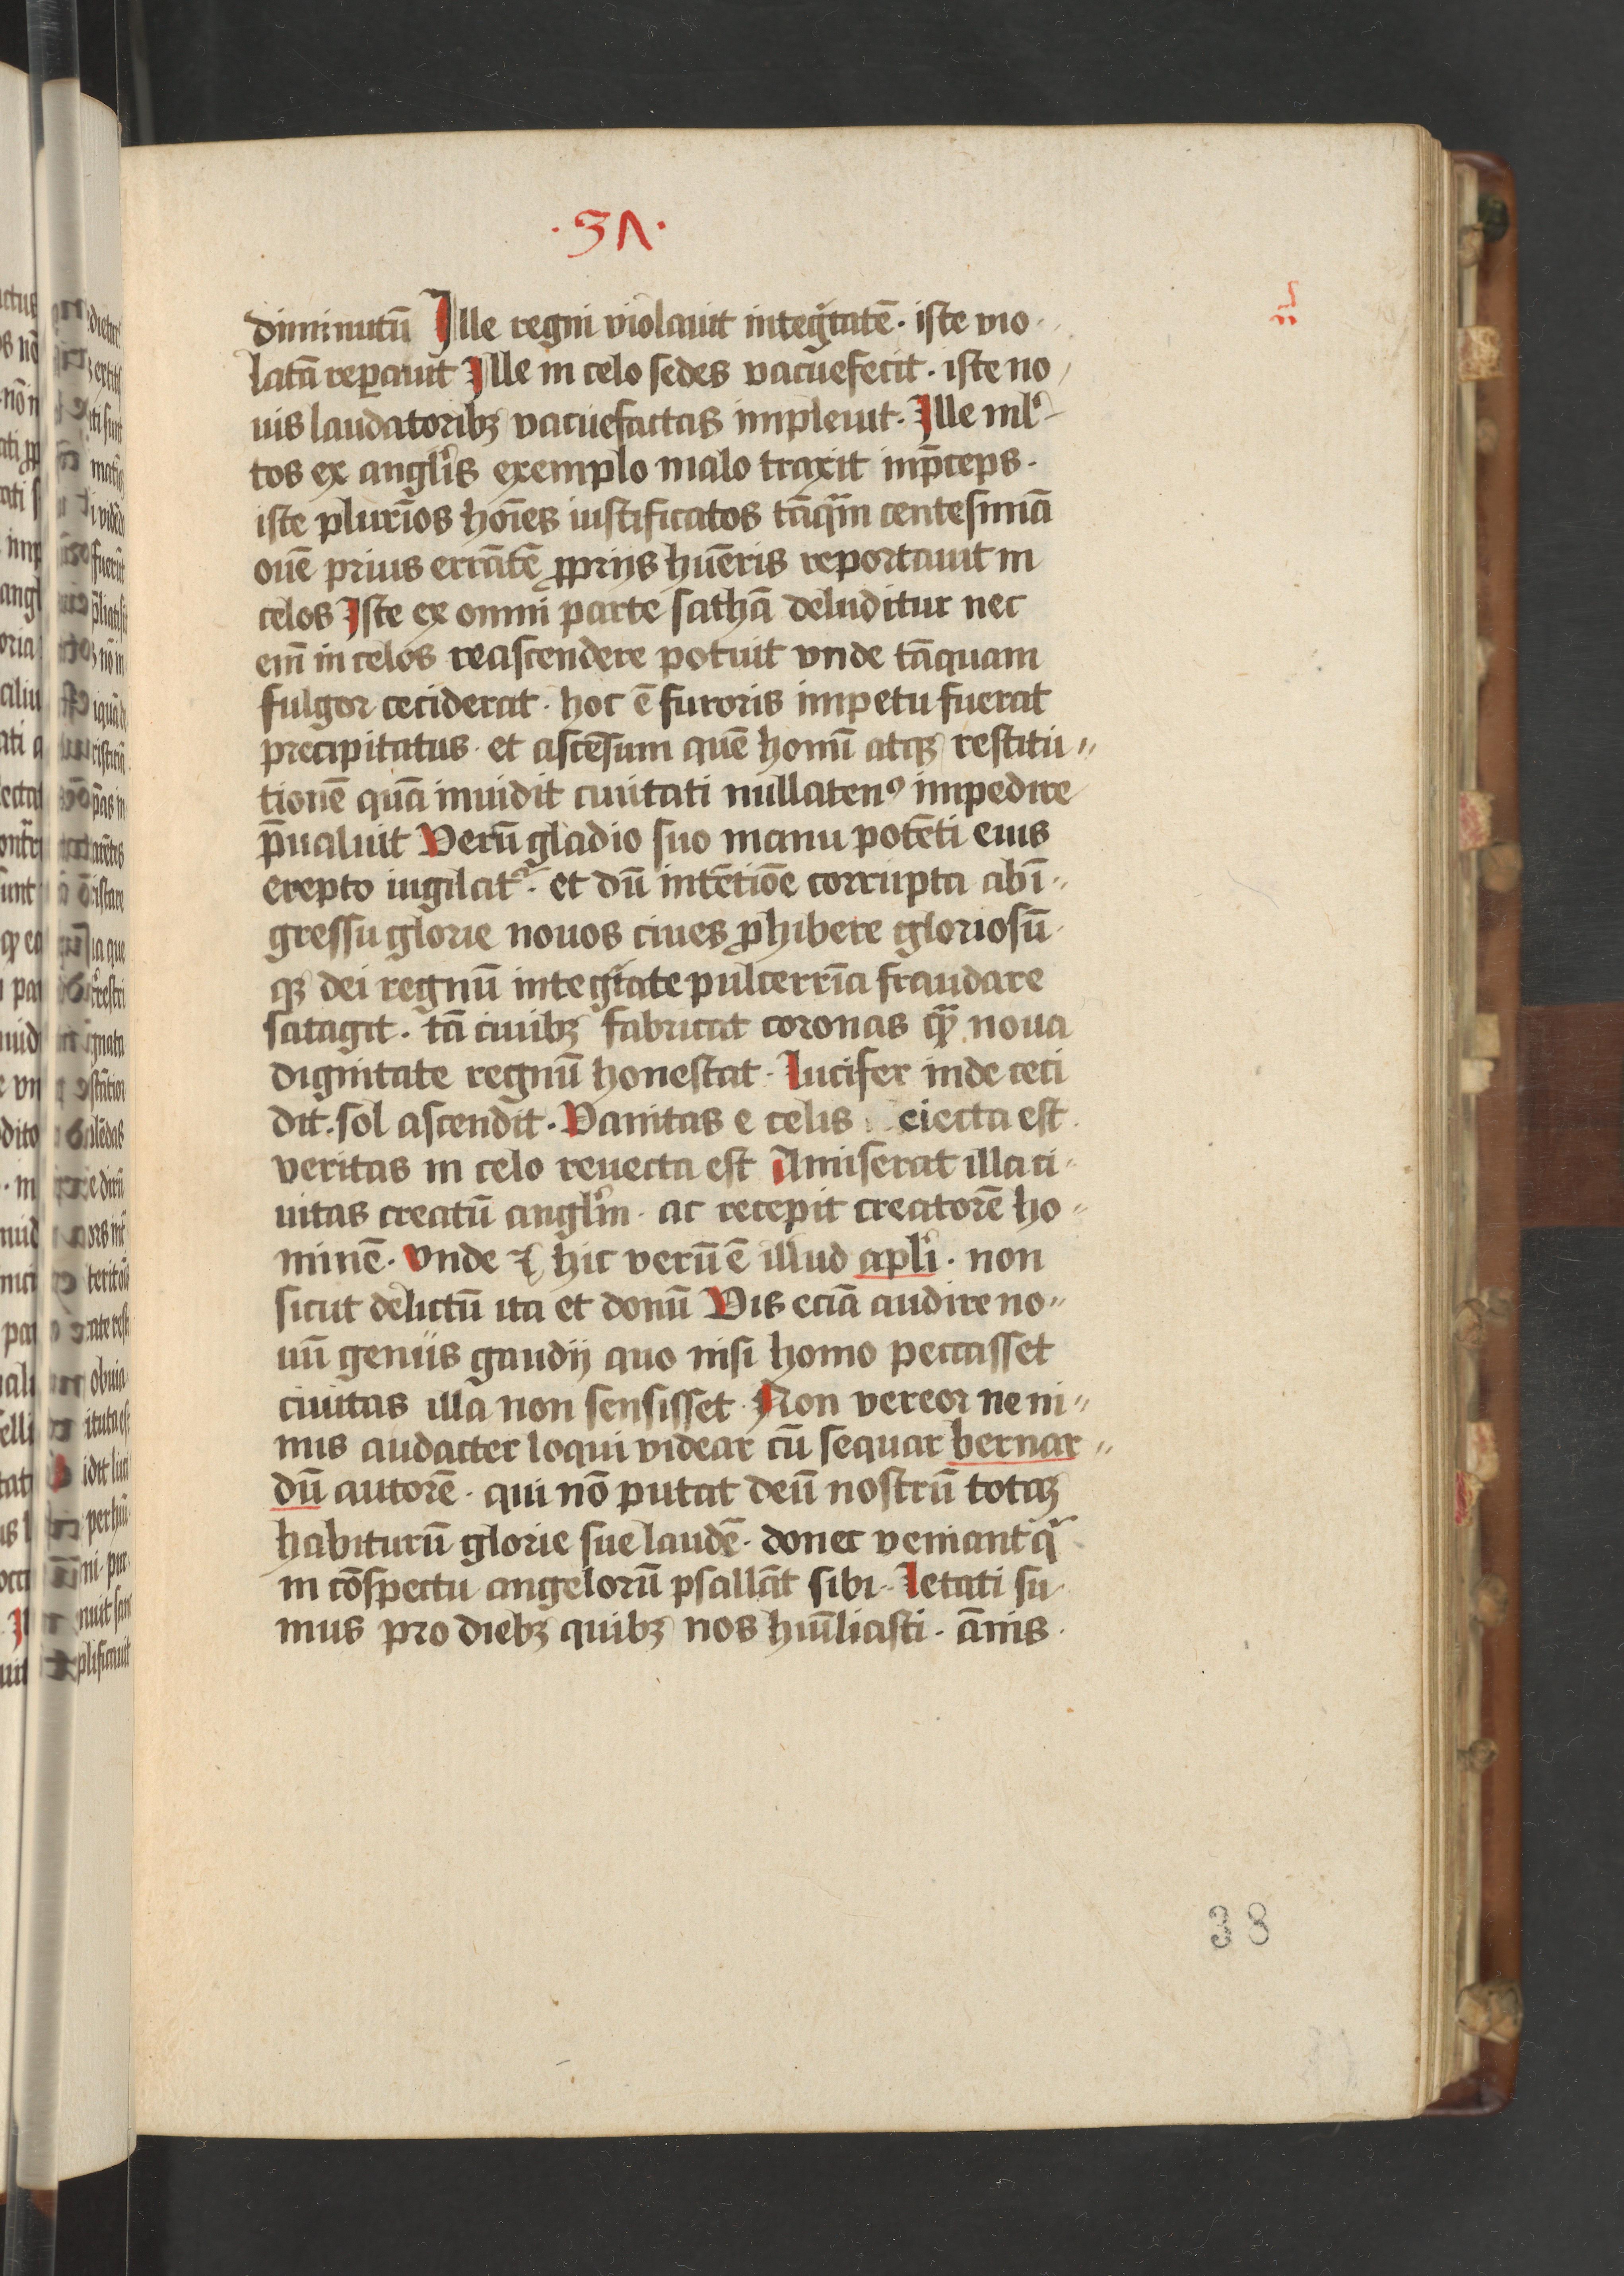 ·37·
diminutū Ille regni violauit integͥtatē · iste vio
latā reꝑauit Ille in celo sedes vacuefecit · iste no
uis laudatoribꝫ vacuefactas impleuit · Ille ml̕
tos ex angl̕is exemplo malo traxit inp̄ceps ·
iste plurīos hoīes iustificatos tāqᷓm centesimā
ouē prius errātē ꝓprijs hūeris reportauit in
celos Iste ex omni parte sathā deluditur nec
em̄ in celos reascendere potuit vnde tāquam
fulgor ceciderat · hoc ē furoris impetu fuerat
precipitatus · et ascēsum quē homī atqꝫ restitu〃
tionē quā inuidit ciuitati nullatenꝰ impedire
p̄ualuit Verū gladio suo manu potēti eius
erepto iugilatᷣ · et dū intētiōe corrupta ab ī〃
gressu glorie nouos ciues ꝓhibere gloriosū
qꝫ dei regnū integͥtate pulcerrīa fraudare
satagit · tā ciuibꝫ fabricat coronas qᷓꝫ noua
dignitate regnū honestat · Lucifer inde ceci
dit · sol ascendit · Vanitas e celis eiecta est ·
veritas in celo reuecta est Amiserat illa ci〃
uitas creatū angl̕m · ac recepit creatorē ho〃
minē · Vnde ⁊ hic verū ē illud apl̕i · non
sicut delictū ita et donū Vis eciā audire no〃
uū genus gaudij quo nisi homo peccasset
ciuitas illa non sensisset · Non vereor ne ni〃
mis audacter loqui videar cū sequar bernar〃
dū autorē · qui nō putat deū nostrū totaꝫ
habiturū glorie sue laudē · donec veniant qͥ
in cōspectu angelorū psallāt sibi · Letati su
mus pro diebꝫ quibꝫ nos hūiliasti · ānis ·
38